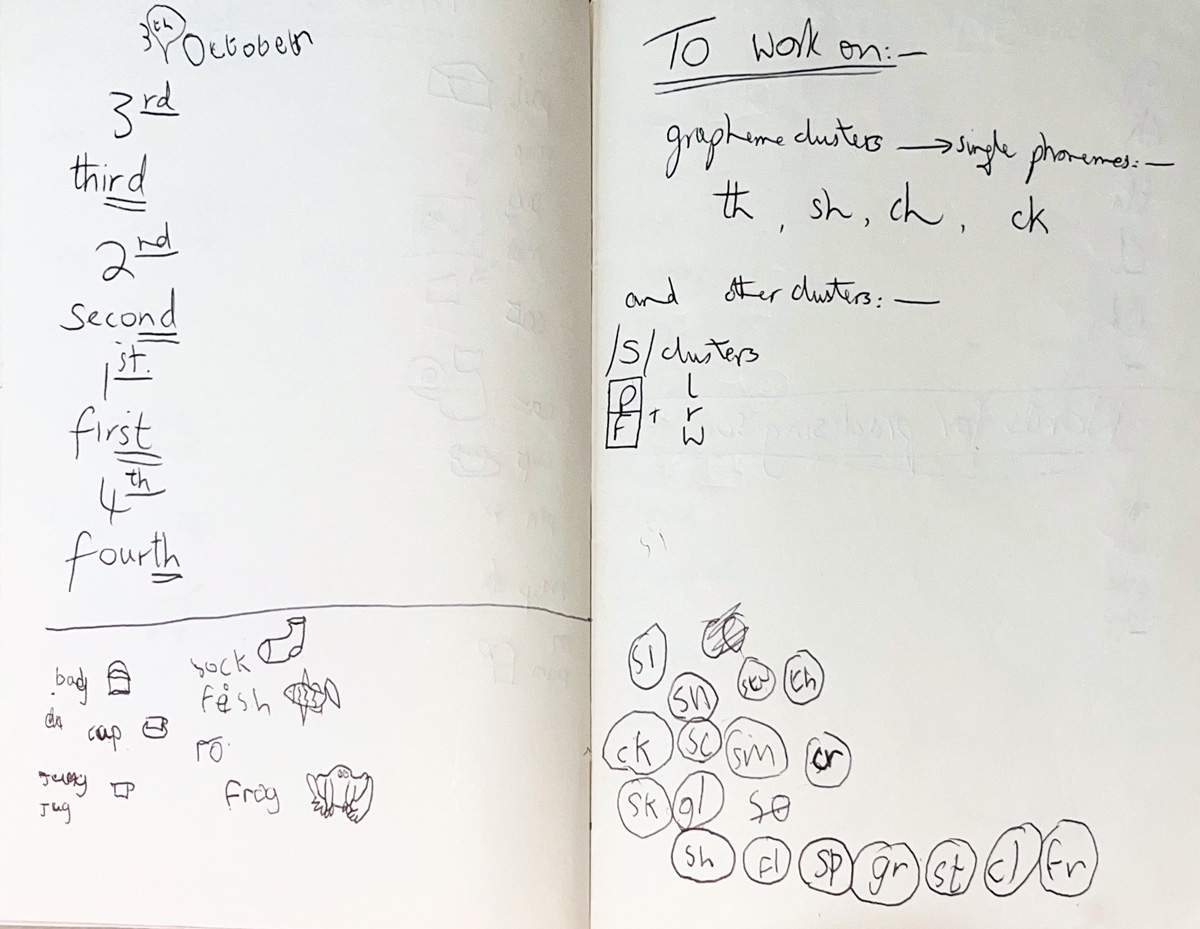 3th October
3rd
third
2nd
second
1st.
first
4th
fourth
sock
fish
cap
ro
frog
Jug
To work on:-
grapheme clusters → single phonemes:-
th, sh, ch, ck
and other clusters:-
/S/ clusters
P l
+ r
F w
sl
sn th
ck sc sm cr
sk gl so
sh fl sp gr st cl fr